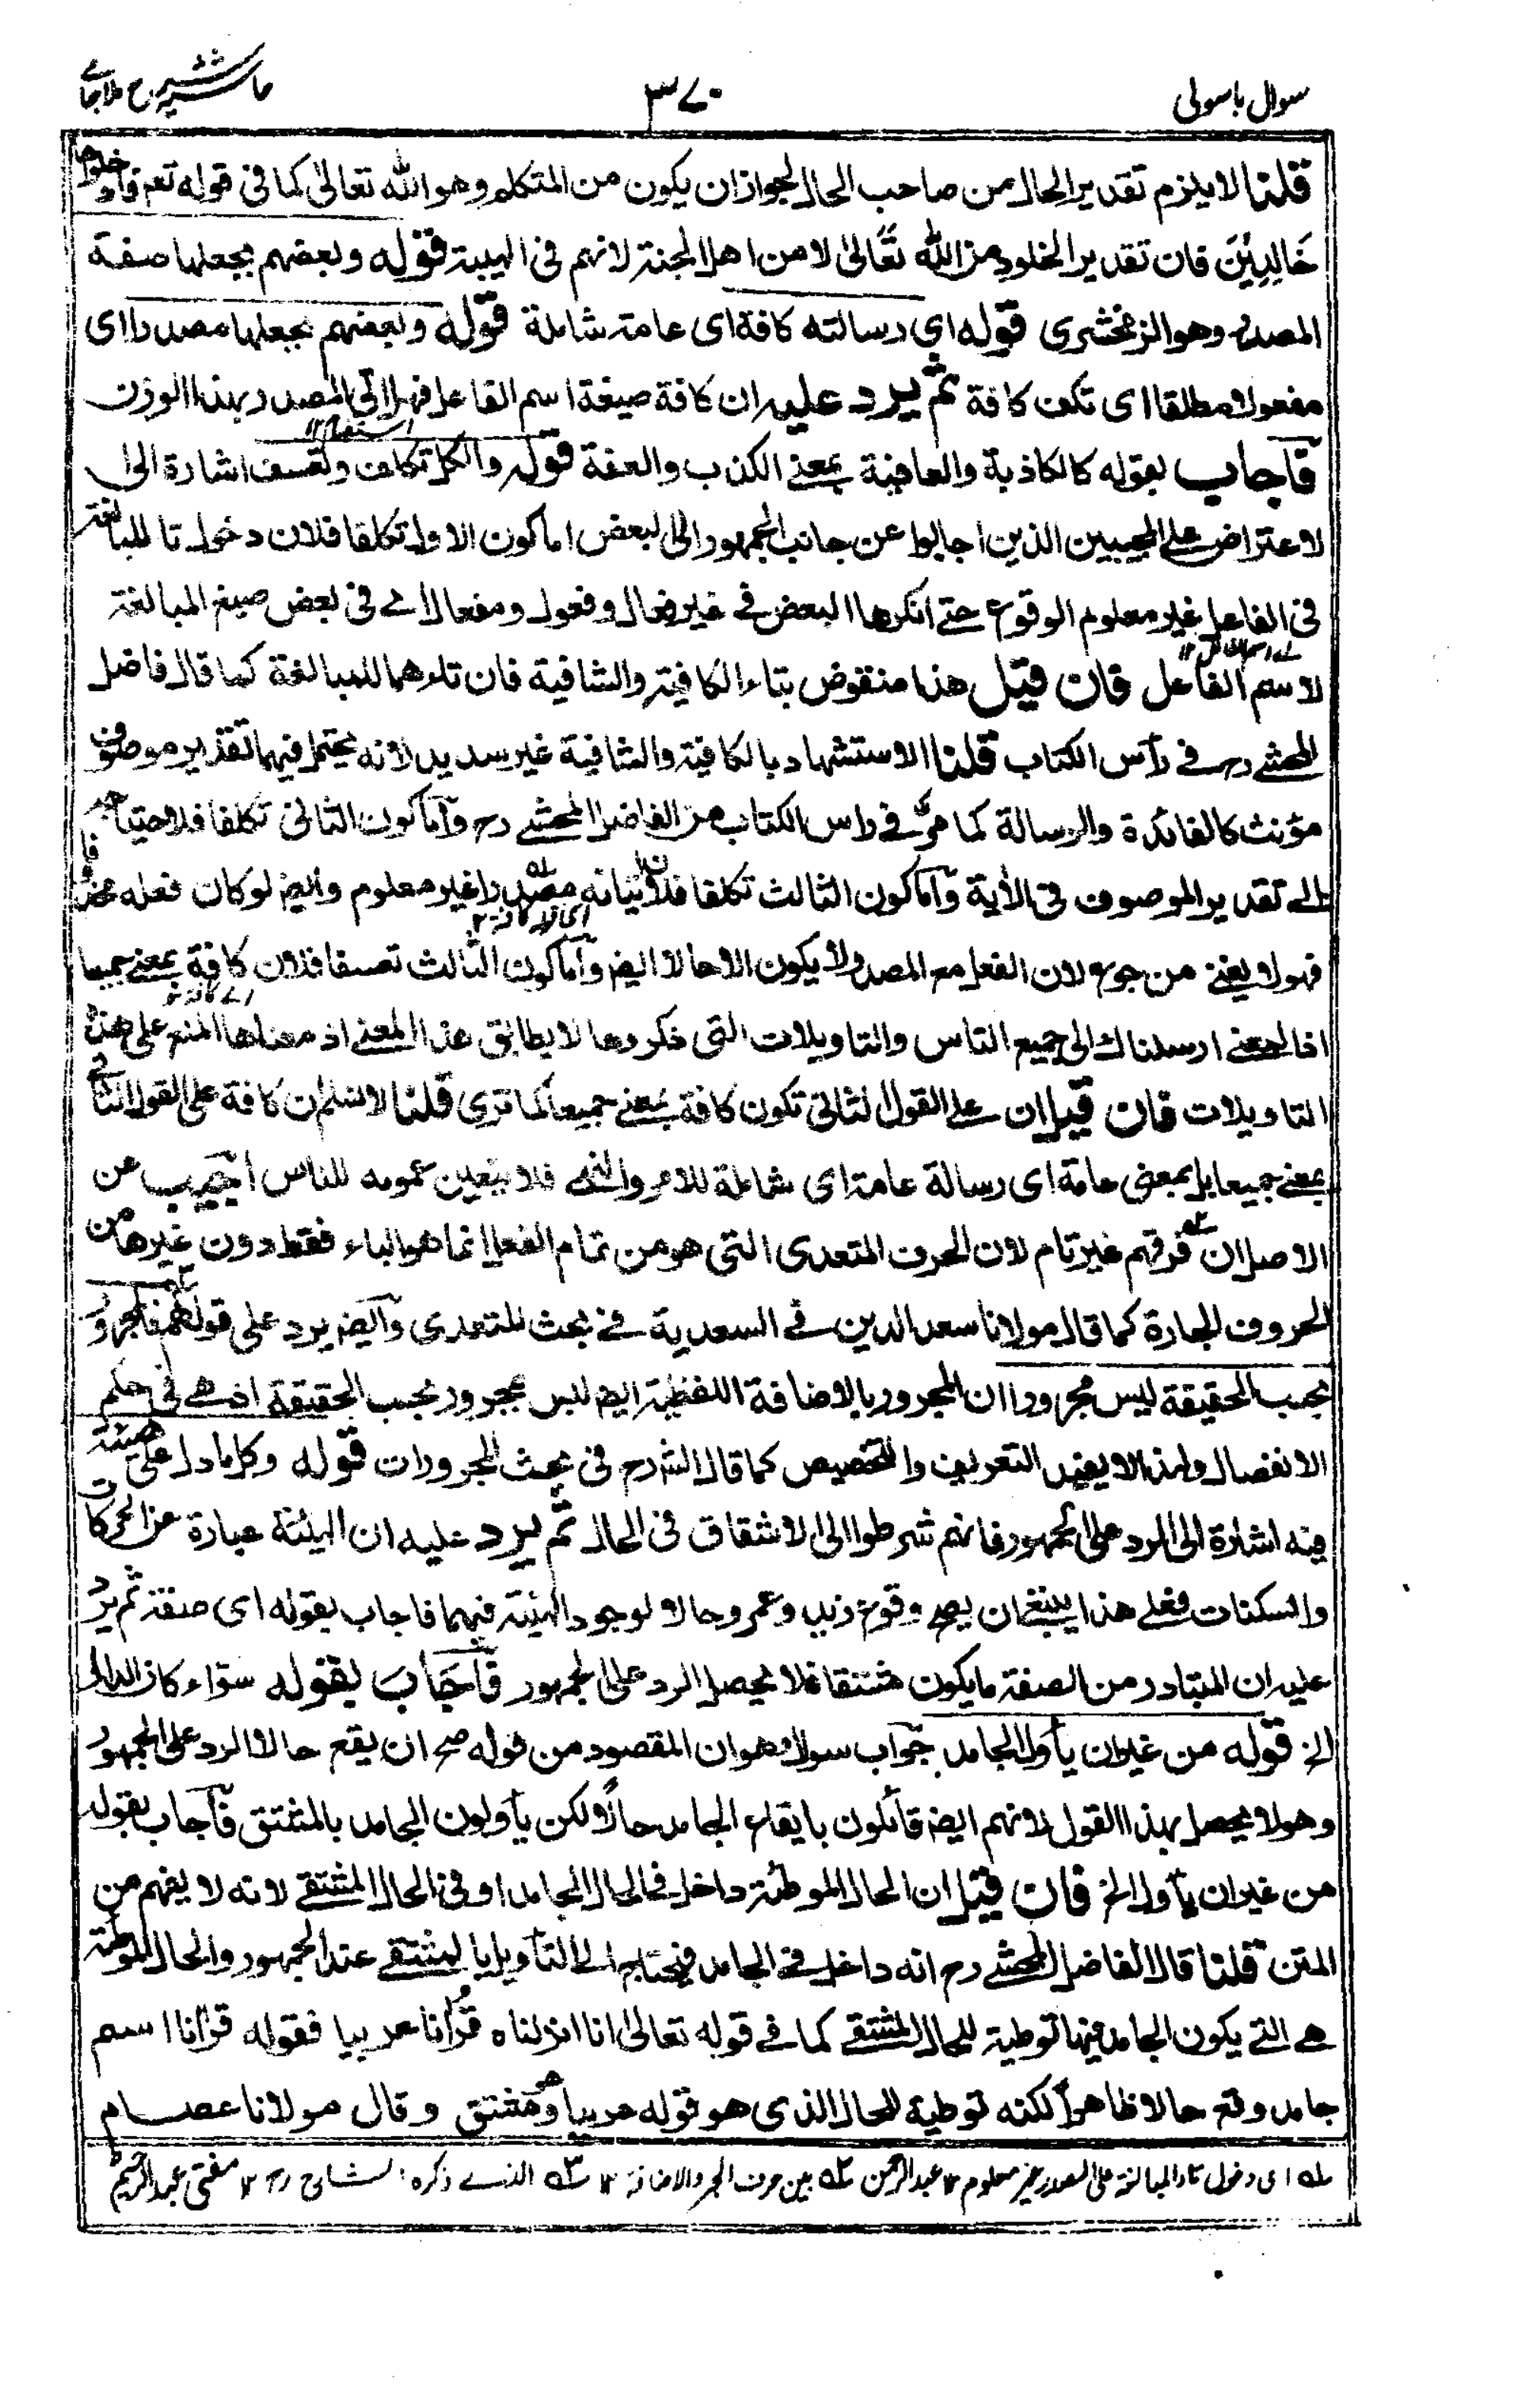 سوال باسولی
٣٧٠
حاشیہ شرح ملاجامی
قلنا لا يلزم تقدير الحال من صاحب الحال لجواز ان يكون من المتكلم وهو الله تعالیٰ كما فی قوله تعم فادخلوها
خَالِدِيْنَ فان تقدير الخلود من الله تعالیٰ لا من اهل الجنة لانهم فی الهيبة قوله وبعضهم يجعلها صفة
المصدر وهو الزمخشری قوله ای رسالته كافة ای عامة شاملة قوله وبعضهم يجعلها مصدرا ای
مفعولا مطلقا ای تكف كافة ثم يرد عليه ان كافة صيغة اسم الفاعل فهل اتی المصدر بهذا الوزن
استفهام ١٢
فاجاب بقوله كالكاذبة والعافية بمعنے الكذب والعفة قوله والكل تكلف وتعسف اشارة الی
لاعتراض علی المجيبين الذين اجابوا عن جانب الجمهور الی البعض اما كون الاول تكلفا فلان دخول تا للمبالغة
فی الفاعل غير معلوم الوقوع حتے انكرها البعض فے غير فعال وفعول ومفعال ای فی بعض صيغ المبالغة
لاسم الفاعل فان قيل هذا منقوض بتاء الكافية والشافية فان تاءهما للمبالغة كما قال فاضل
المحشے رح فے رأس الكتاب قلنا الاستشهاد بالكافية والشافية غير سديد لانه يحتمل فيهما تقدير موصوف
مؤنث كالفائدة والرسالة كما مر فے راس الكتاب من الفاضل المحشے رح وآما كون الثانی تكلفا فلاحتياجه
الے تقدير الموصوف فی الأية وآما كون الثالث تكلفا فلان اتيانه مصدرا غير معلوم وايضا لو كان فعله محذوفا
ای تاء كافة ١٢
فهو لا يغنے من جوع لان الفعل مع المصدر لا يكون الا حالا ايضا وآما كون الثالث تعسفا فلان كافة بمعنے جميعا
ای كافة ١٢
اذ المعنے ارسلناك الی جميع الناس والتاويلات التی ذكروها لا يطابق هذا المعنے اذ معناها المنع علی هذه
التاويلات فان قيل ان علے القول الثانی تكون كافة بمعنے جميعا كما تری قلنا لا نسلم ان كافة علی القول الثانی
بمعنے جميعا بل بمعنی عامة ای رسالة عامة ای شاملة للامر والنهے فلا يتعين عمومه للناس اجيب عن
الاصل ان فرقهم غير تام لان الحرف المتعدی التی هو من تمام الفعل انما هو الباء فقط دون غيرها من
الحروف الجارة كما قال مولانا سعد الدين فے السعدية فے بحث المتعدی وآيضا يرد علی قولهم فالمجرور
بحسب الحقيقة ليس مجرورا ان المجرور بالاضافة اللفظية ايضا ليس بمجرور بحسب الحقيقة اذ هے فی حكم
الانفصال ولهذا لا يفيد التعريف والتخصيص كما قال الش رح فی بحث المجرورات قوله وكل ما دل علی هيئة
فيه اشارة الی الرد علی الجمهور فانهم شرطوا الی الاشتقاق فی الحال ثم يرد عليه ان الهيئة عبارة عن الحركات
والسكنات فعلے هذا ينبغے ان يصح وقوع زيد وعمرو حالا لوجود الهيئة فيهما فاجاب بقوله ای صفة ثم يرد
عليه ان المتبادر من الصفة ما يكون مشتقا فلا يحصل الرد علی الجمهور فآجاب بقوله سوآء كان الدال
الخ قوله من غير ان يأول الجامد جوآب سوال وهو ان المقصود من قوله صح ان يقع حالا الرد علی الجمهور
وهو لا يحصل بهذا القول لانهم ايضا قائلون بايقاع الجامد حالاً ولكن يأولون الجامد بالمشتق فآجاب بقوله
من غير ان يأول الخ فان قيل ان الحال الموطئة داخل فے الحال الجامد او فی الحال المشتقے لانه لا يفهم من
المتن قلنا قال الفاضل المحشے رح انه داخل فے الجامد فيحتاج الی التأويل بالمشتقے عند الجمهور والحال الموطئة
هے التے يكون الجامد فيها توطية للحال المشتقے كما فے قوله تعالیٰ انا انزلناه قُرآنا عربيا فقوله قرانا اسم
جامد وقع حالا ظاهراً لكنه توطية للحال الذی هو قوله عربيا وهو مشتق وقال مولانا عصام
لہ ای دخول تاء المبالغة علی المصدر غير معلوم ١٢ عبد الرحمن ٢ہ بين حرف الجر والاضافة ١٢ ٣ہ الذے ذكره الشارح رح ١٢ مفتی عبد الرحيم